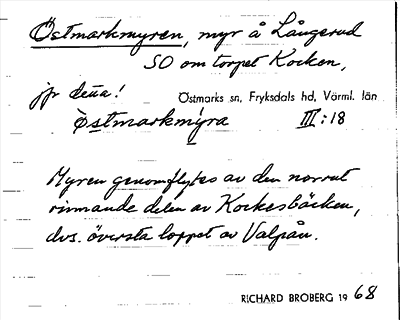 Östmarkmyren, myr å Långerud
SO om torpet Kocken,
jfr detta!
Östmarks sn, Fryksdals hd, Värml. län
östmarkmyra III:18
Myren genomflytes av den norrut
rinnande delen av Kockesbäcken,
dvs. översta loppet av Valpån.
RICHARD BROBERG 1968